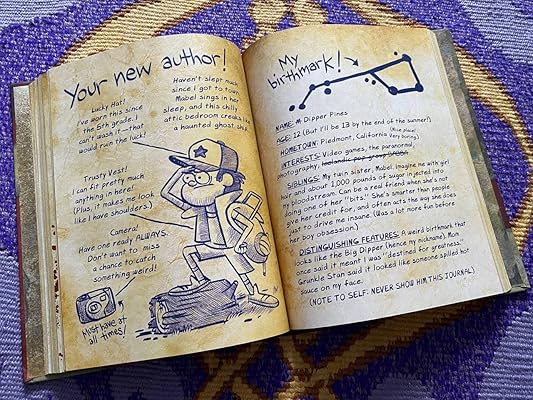 Your new author!
Lucky Hat!
I've worn this since
the 5th grade. I
can't wash it—that
would run the luck!
Haven't slept much
since I got to town.
Mabel sings in her
sleep, and this chilly
attic bedroom creaks like
a haunted ghost ship.
Trusty Vest!
I can fit pretty much
anything in here!
(Plus, it makes me look
like I have shoulders.)
Camera!
Have one ready ALWAYS.
Don't want to miss
a chance to catch
something weird!
Must have at
all times!
My
birthmark!
NAME: M Dipper Pines
AGE: 12 (But I'll be 13 by the end of the summer!)
HOMETOWN: Piedmont, California (Nice place! Very boring)
INTERESTS: Video games, the paranormal,
photography, Icelandic pop group
SIBLINGS: My twin sister, Mabel. Imagine me with girl
hair and about 1,000 pounds of sugar in injected into
my bloodstream. Can be a real friend when she's not
doing one of her "bits." She's smarter than people
give her credit for, and often acts the way she does
just to drive me insane. (Was a lot more fun before
her boy obsession.)
DISTINGUISHING FEATURES: A weird birthmark that
looks like the Big Dipper (hence my nickname). Mom
once said it meant I was "destined for greatness."
Grunkle Stan said it looked like someone spilled hot
sauce on my face.
(NOTE TO SELF: NEVER SHOW HIM THIS JOURNAL)